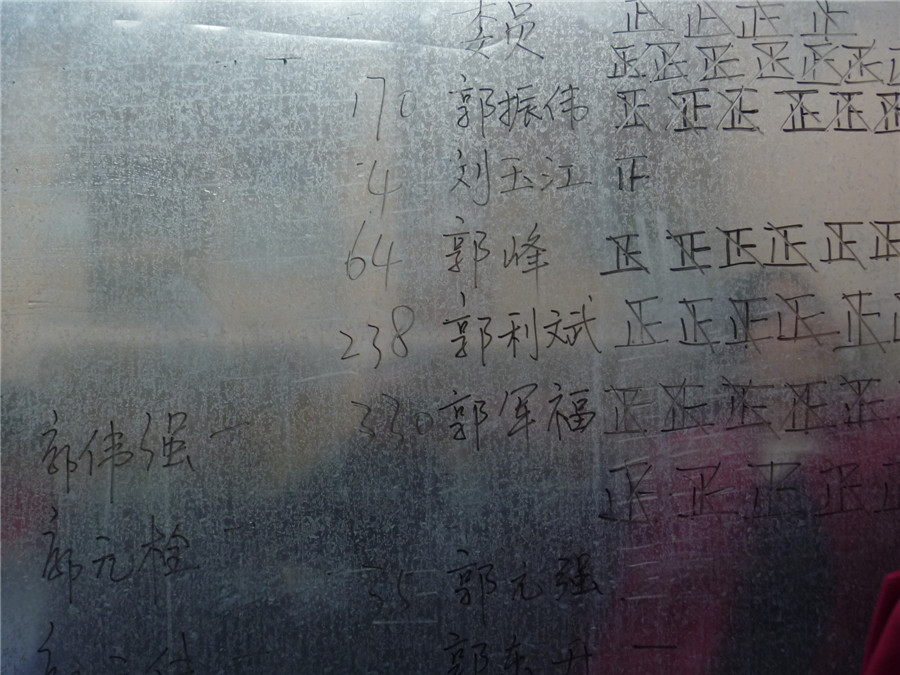 委员 正 正 正 正
正 正 正 正 正 正
170 郭振伟 正 正 正 正 正 正
4 刘玉江 正
64 郭峰 正 正 正 正 正 正
238 郭利斌 正 正 正 正 正
330 郭军福 正 正 正 正 正
郭伟强 一
正 正 正 正
郭元栓 一
35 郭元强 三
郭东升 一